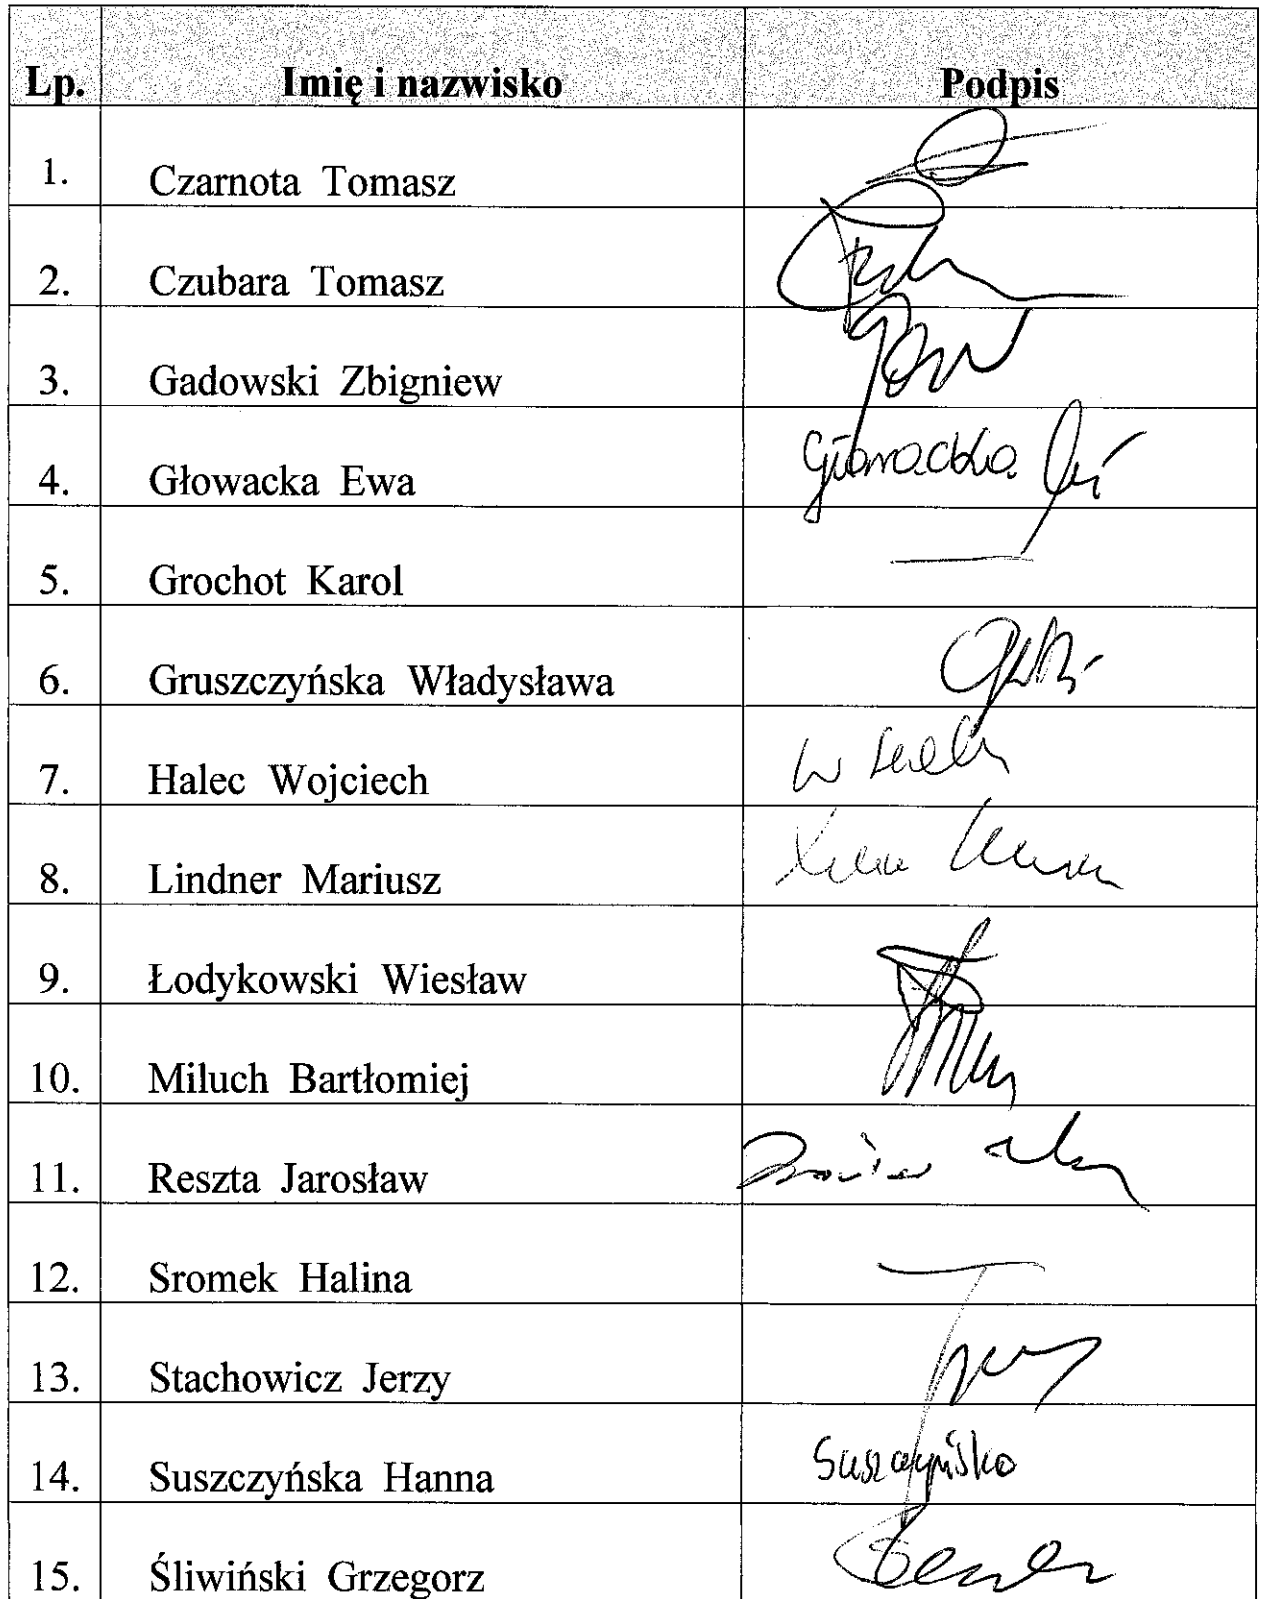 Lp. Imię i nazwisko Podpis
1. Czarnota Tomasz
2. Czubara Tomasz
3. Gadowski Zbigniew
4. Głowacka Ewa Głowacka
5. Grochot Karol
6. Gruszczyńska Władysława
7. Halec Wojciech
8. Lindner Mariusz
9. Łodykowski Wiesław
10. Miluch Bartłomiej
11. Reszta Jarosław
12. Sromek Halina
13. Stachowicz Jerzy
14. Suszczyńska Hanna Suszczyńska
15. Śliwiński Grzegorz